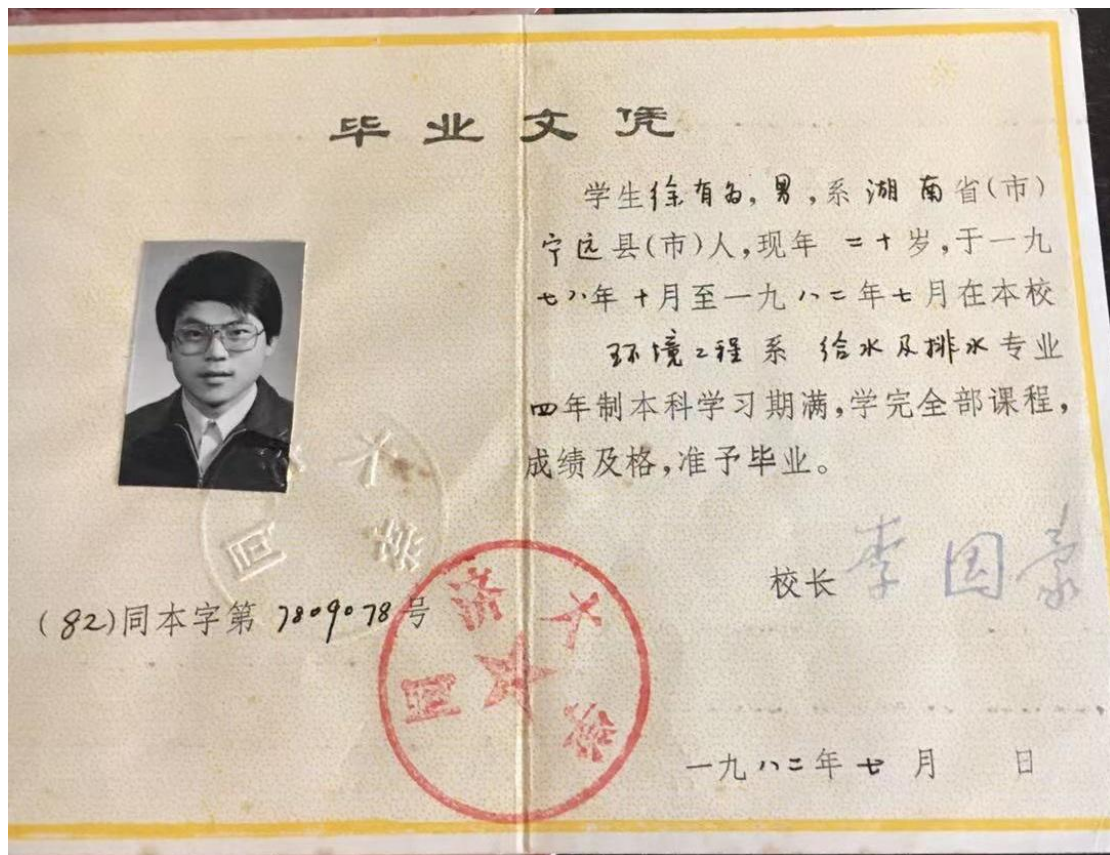 毕业文凭
学生徐有为,男,系湖南省(市)
宁远县(市)人,现年二十岁,于一九
七八年十月至一九八二年七月在本校
环境工程系 给水及排水专业
四年制本科学习期满,学完全部课程,
成绩及格,准予毕业。
校长 李国豪
(82)同本字第7809078号
同济大学
一九八二年七月 日